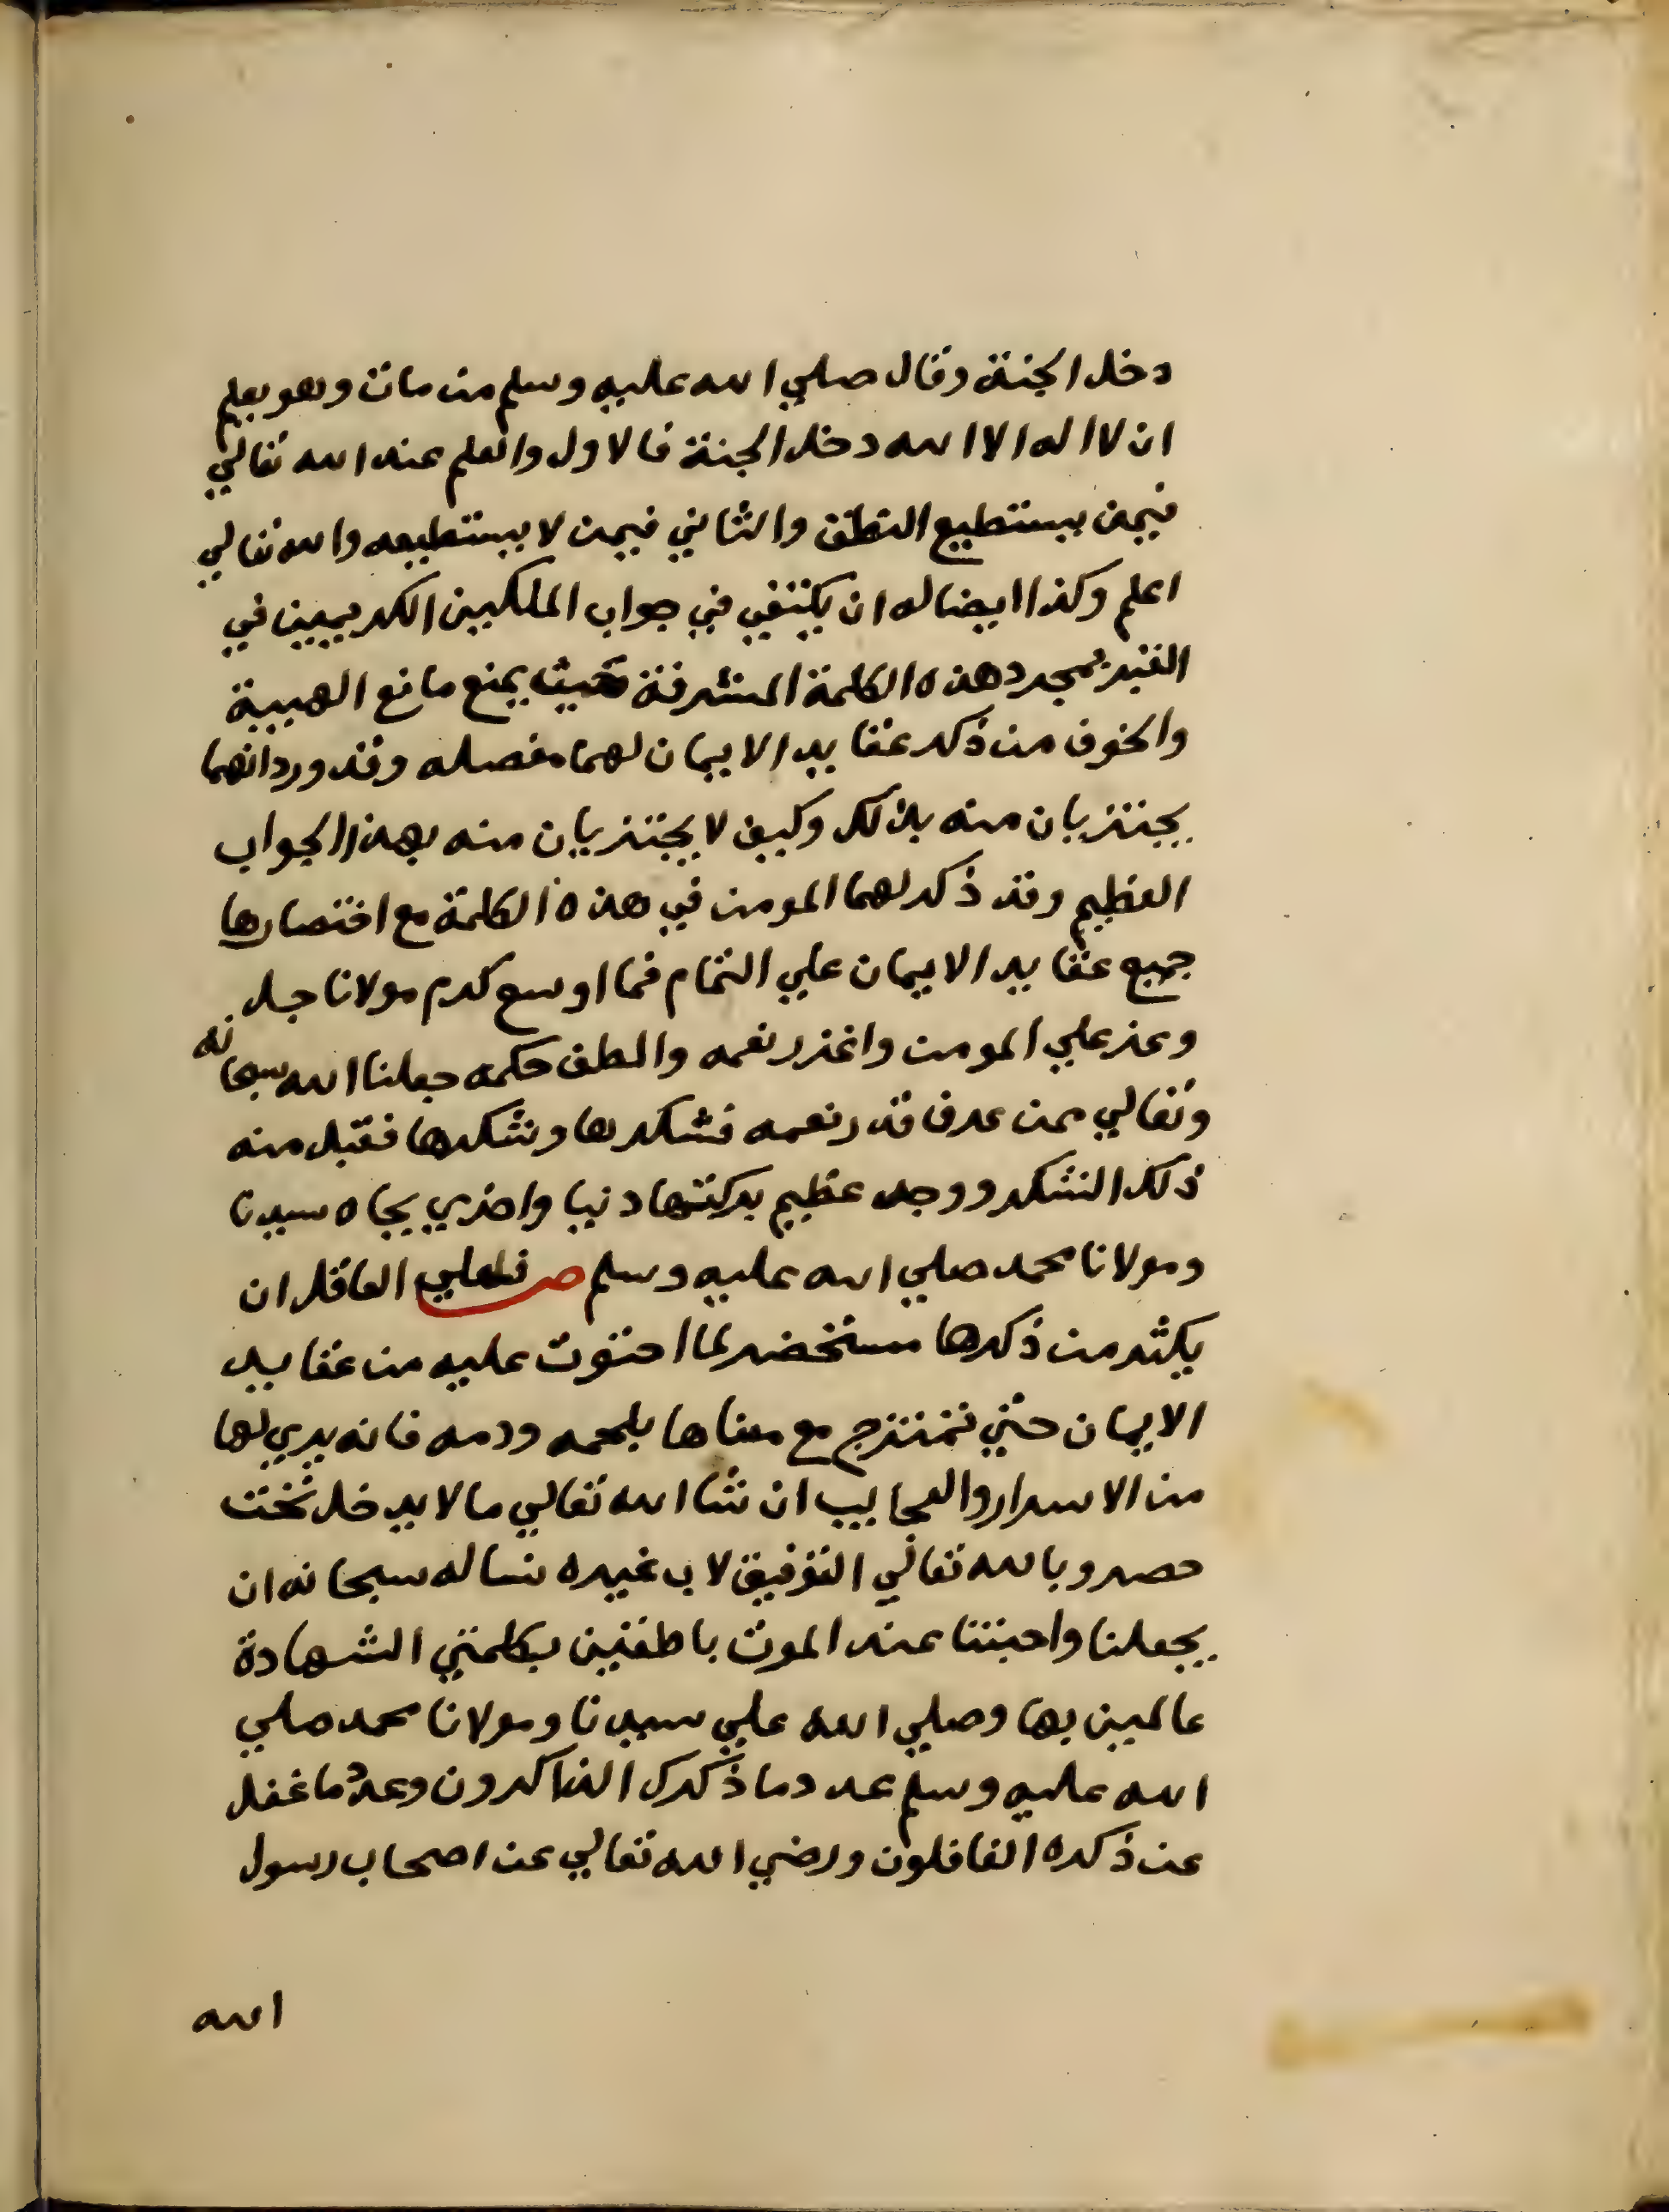 دخل الجنة وقال صلي الله عليه وسلم من مات وهو يعلم
ان لا اله الا الله دخل الجنة فالاول والعلم عند الله تعالي
فيمن يستطيع النطق والثاني فيمن لا يستطيعه والله تعالي
اعلم وكذا ايضا له ان يكتفي في جواب الملكين الكريمين في
القبر بمجرد هذه الكلمة المشرفة حيث يمنع مانع الهيبة
والخوف من ذكر عقايد الايمان لهما مفصله وقد ورد انهما
يجتزيان منه بذلك وكيف لا يجتزيان منه بهذا الجواب
العظيم وقد ذكر لهما المومن في هذه الكلمة مع اختصارها
جميع عقايد الايمان علي التمام فما اوسع كرم مولانا جل
وعز علي المومن واغزر نعمه والطف حكمه جعلنا الله سبحانه
وتعالي ممن عرف قدر نعمه فشكرها وشكرها فقبل منه
ذلك الشكر ووجد عظيم بركتها دنيا واخري بجاه سيدنا
ومولانا محمد صلي الله عليه وسلم ص فعلي العاقل ان
يكثر من ذكرها مستحضر لما احتوت عليه من عقايد
الايمان حتي تمتزج مع معناها بلحمه ودمه فانه يري لها
من الاسرار والعجايب ان شا الله تعالي ما لا يدخل تحت
حصر وبالله تعالي التوفيق لا ب غيره نساله سبحانه ان
يجعلنا واحبتنا عند الموت ناطقين بكلمتي الشهادة
عالمين بها وصلي الله علي سيدنا ومولانا محمد صلي
الله عليه وسلم عدد ما ذكرك الذاكرون وعدد ما غفل
عن ذكره الغافلون ورضي الله تعالي عن اصحاب رسول
الله